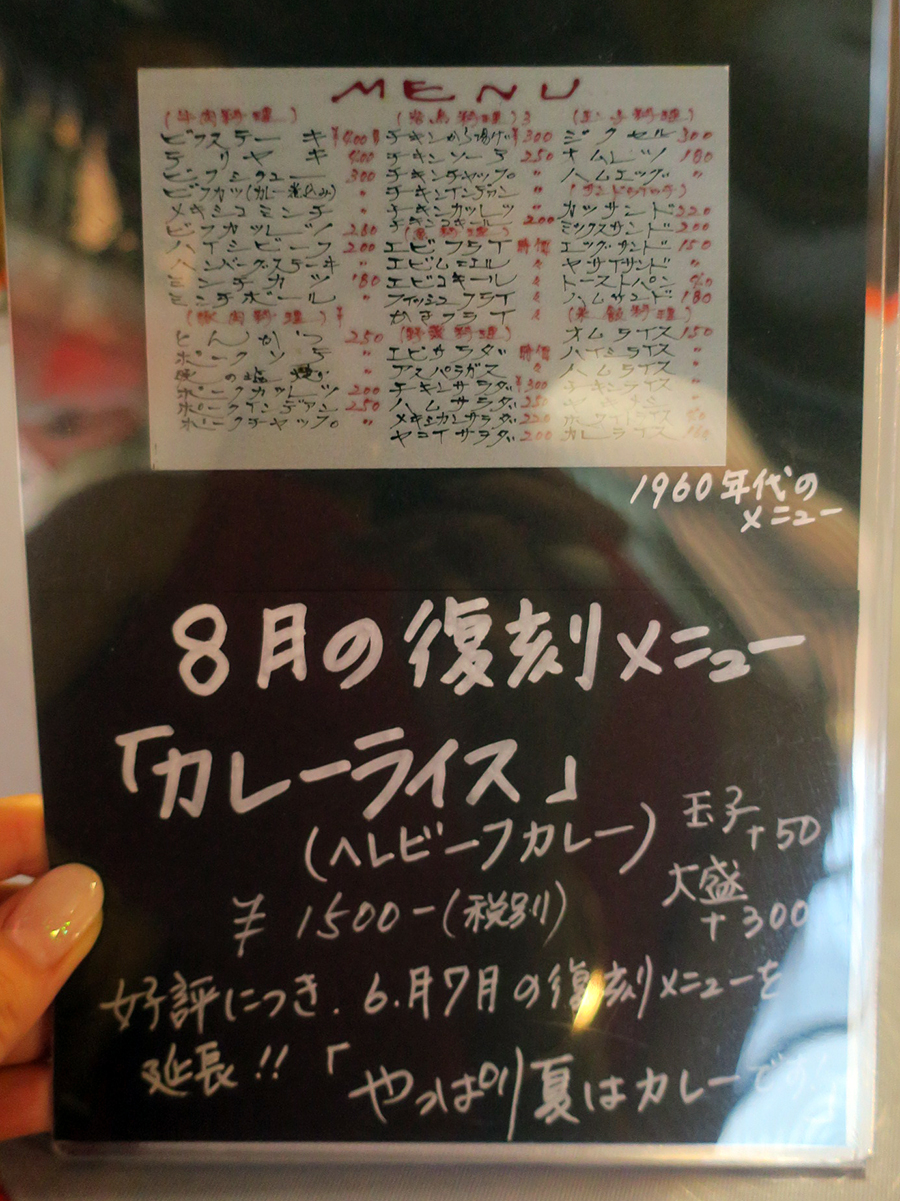 MENU
(牛肉料理)
ビフステーキ ¥400
テリヤキ 400
ビーフシチュー 300
ビフカツ(カレー煮込み) 〃
メキシコミンチ 〃
ビーフカツレツ 280
ハイシビーフ 200
ハンバーグステーキ 〃
ミンチカツ 180
ミンチボール 〃
(豚肉料理) ¥
とんかつ 250
ポークソテー 〃
豚の塩焼 〃
ポークカツレツ 200
ポークインデアン 250
ポークチャップ 〃
チキンから揚げ ¥300
チキンソーテ 250
チキンチャップ 〃
チキンインデアン 〃
チキンカツレツ 〃
チキンコキール 200
エビフライ 時價
エビムニエル 〃
エビコキール 〃
フィッシュフライ 〃
かきフライ 〃
(野菜料理)
エビサラダ 時價
アスパラガス 〃
チキンサラダ ¥300
ハムサラダ 250
メキシカンサラダ 220
ヤサイサラダ 200
(玉子料理)
オムレツ 180
ハムエッグ 〃
(サンドウイッチ)
カツサンド 220
ミックスサンド 200
エッグサンド 150
ヤサイサンド 〃
トーストパン
ハムサンド 180
(米飯料理)
オムライス 150
ハイシライス 〃
ハムライス 〃
チキンライス 〃
カレライス
1960年代の
メニュー
8月の復刻メニュー
「カレーライス」
(ヘレビーフカレー)
玉子
+50
大盛
+300
¥1500-(税別)
好評につき、6.月7月の復刻メニューを
延長!!「やっぱり夏はカレーで